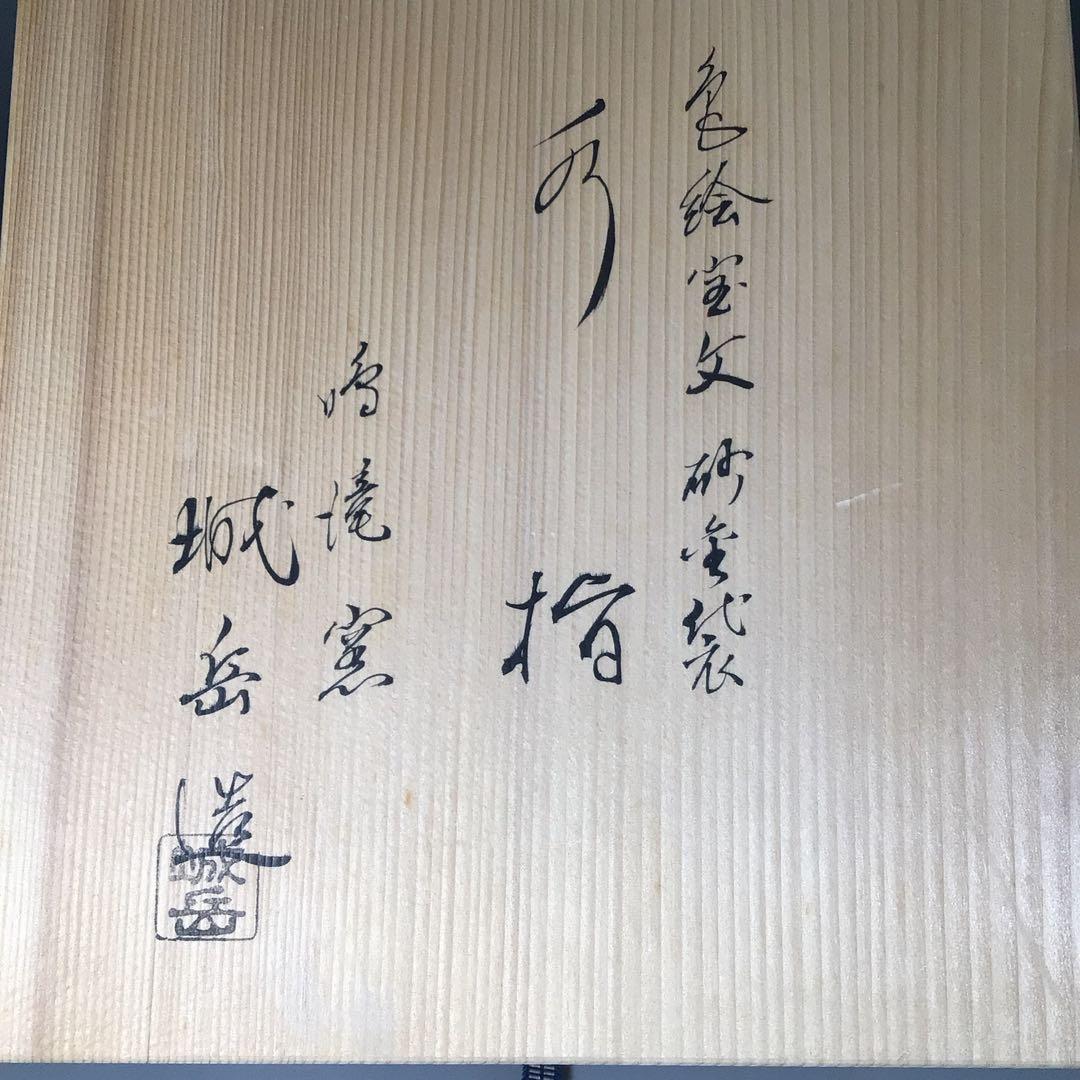 色絵宝文砂金袋
水指
鳴滝窯
城岳造
城岳